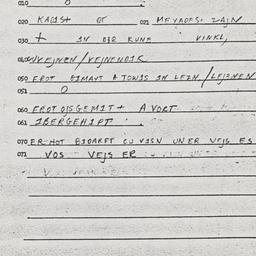 010 O
020 KADISH OT 021 MEVADES ZAJN
030 + IN DER RUNE VINKL
040 VEJNEN / VEJNENDIK
050 EROT GIMANT A TOVIS IN LEZN / LEJENEN
051 O
060 EROT OJSGEMIT + A VORT
061 IBERGEHIPT
070 ER HOT BIDARFT CU VISN UNER VEJS ES
071 VOS VEJS ER